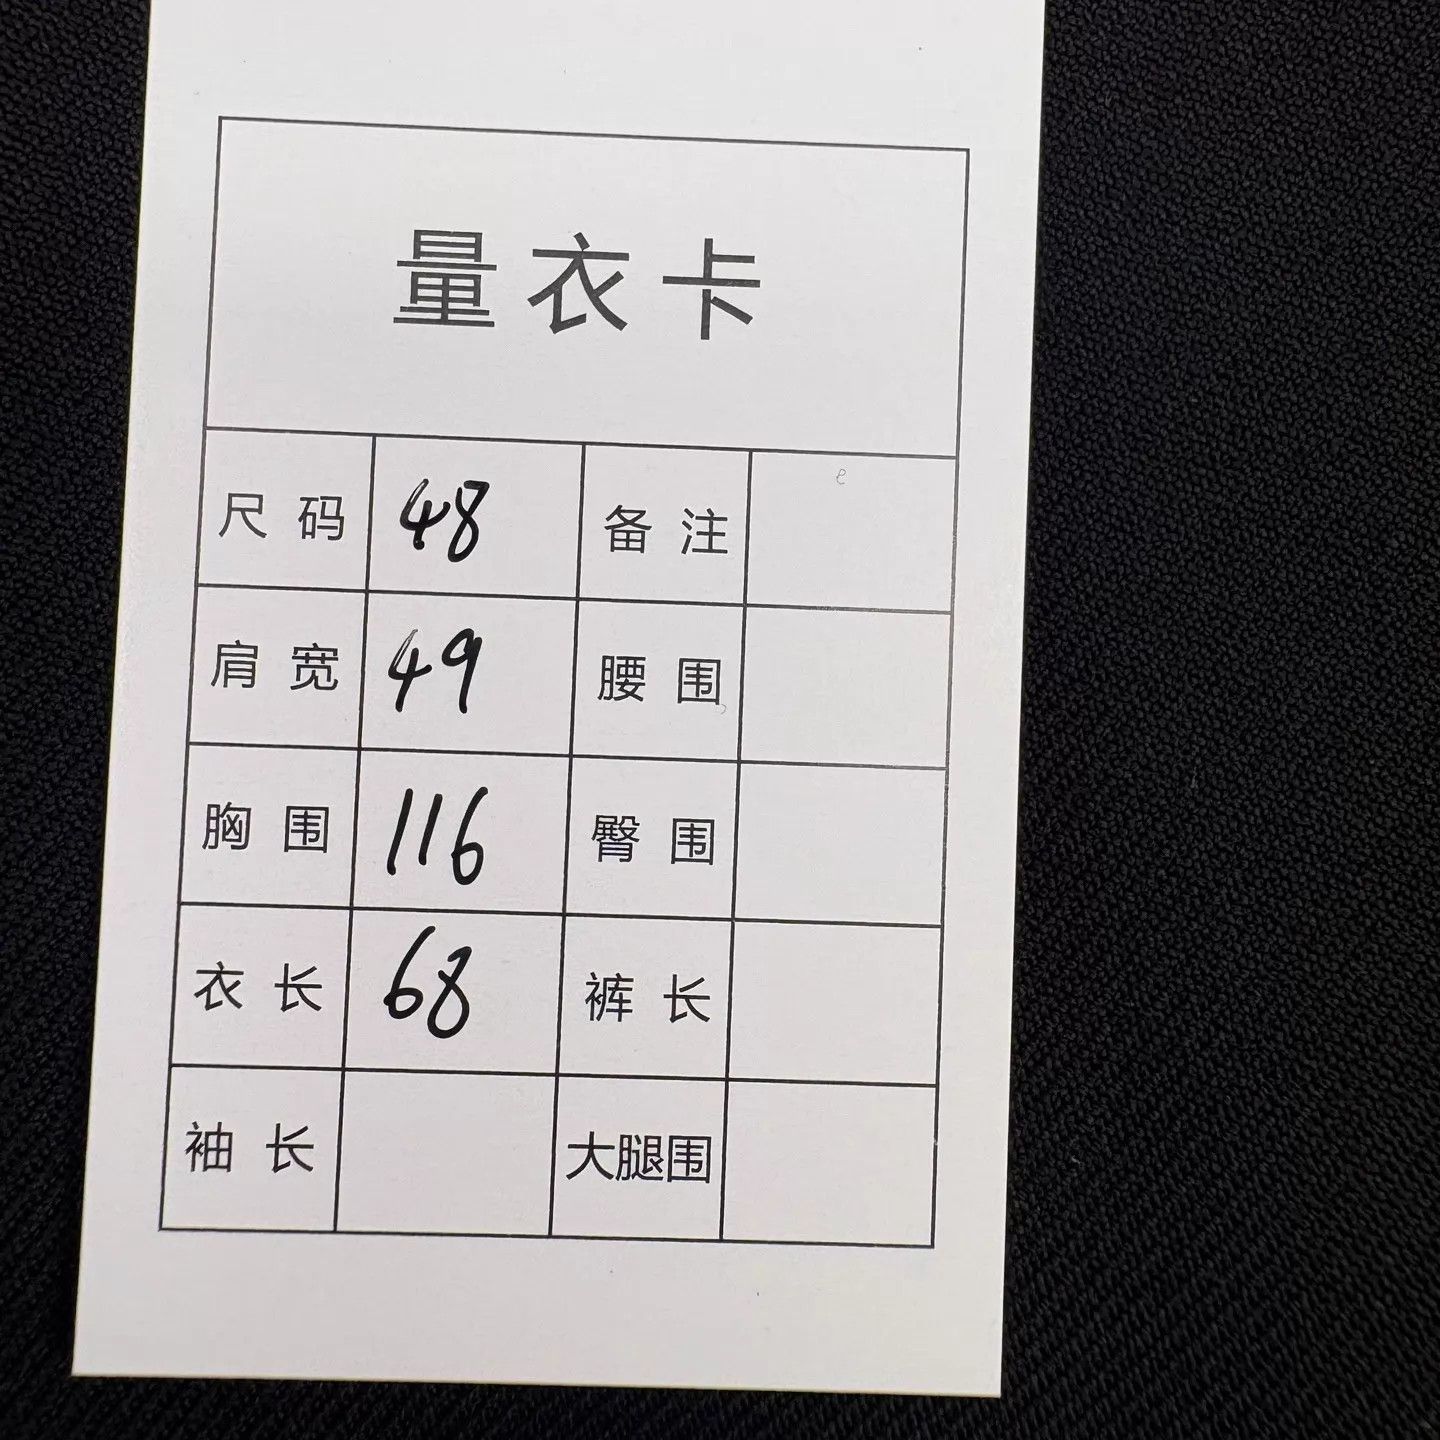 量衣卡
尺码 48 备注
肩宽 49 腰围
胸围 116 臀围
衣长 68 裤长
袖长 大腿围